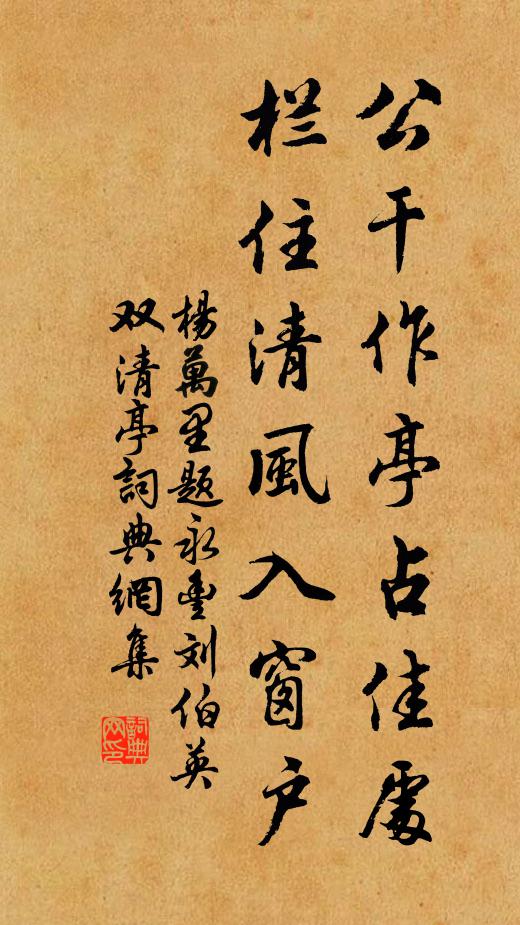 公干作亭占佳處
栏住清風入窗户
楊萬里题永豊刘伯英
双清亭詞典網集
詞典網印